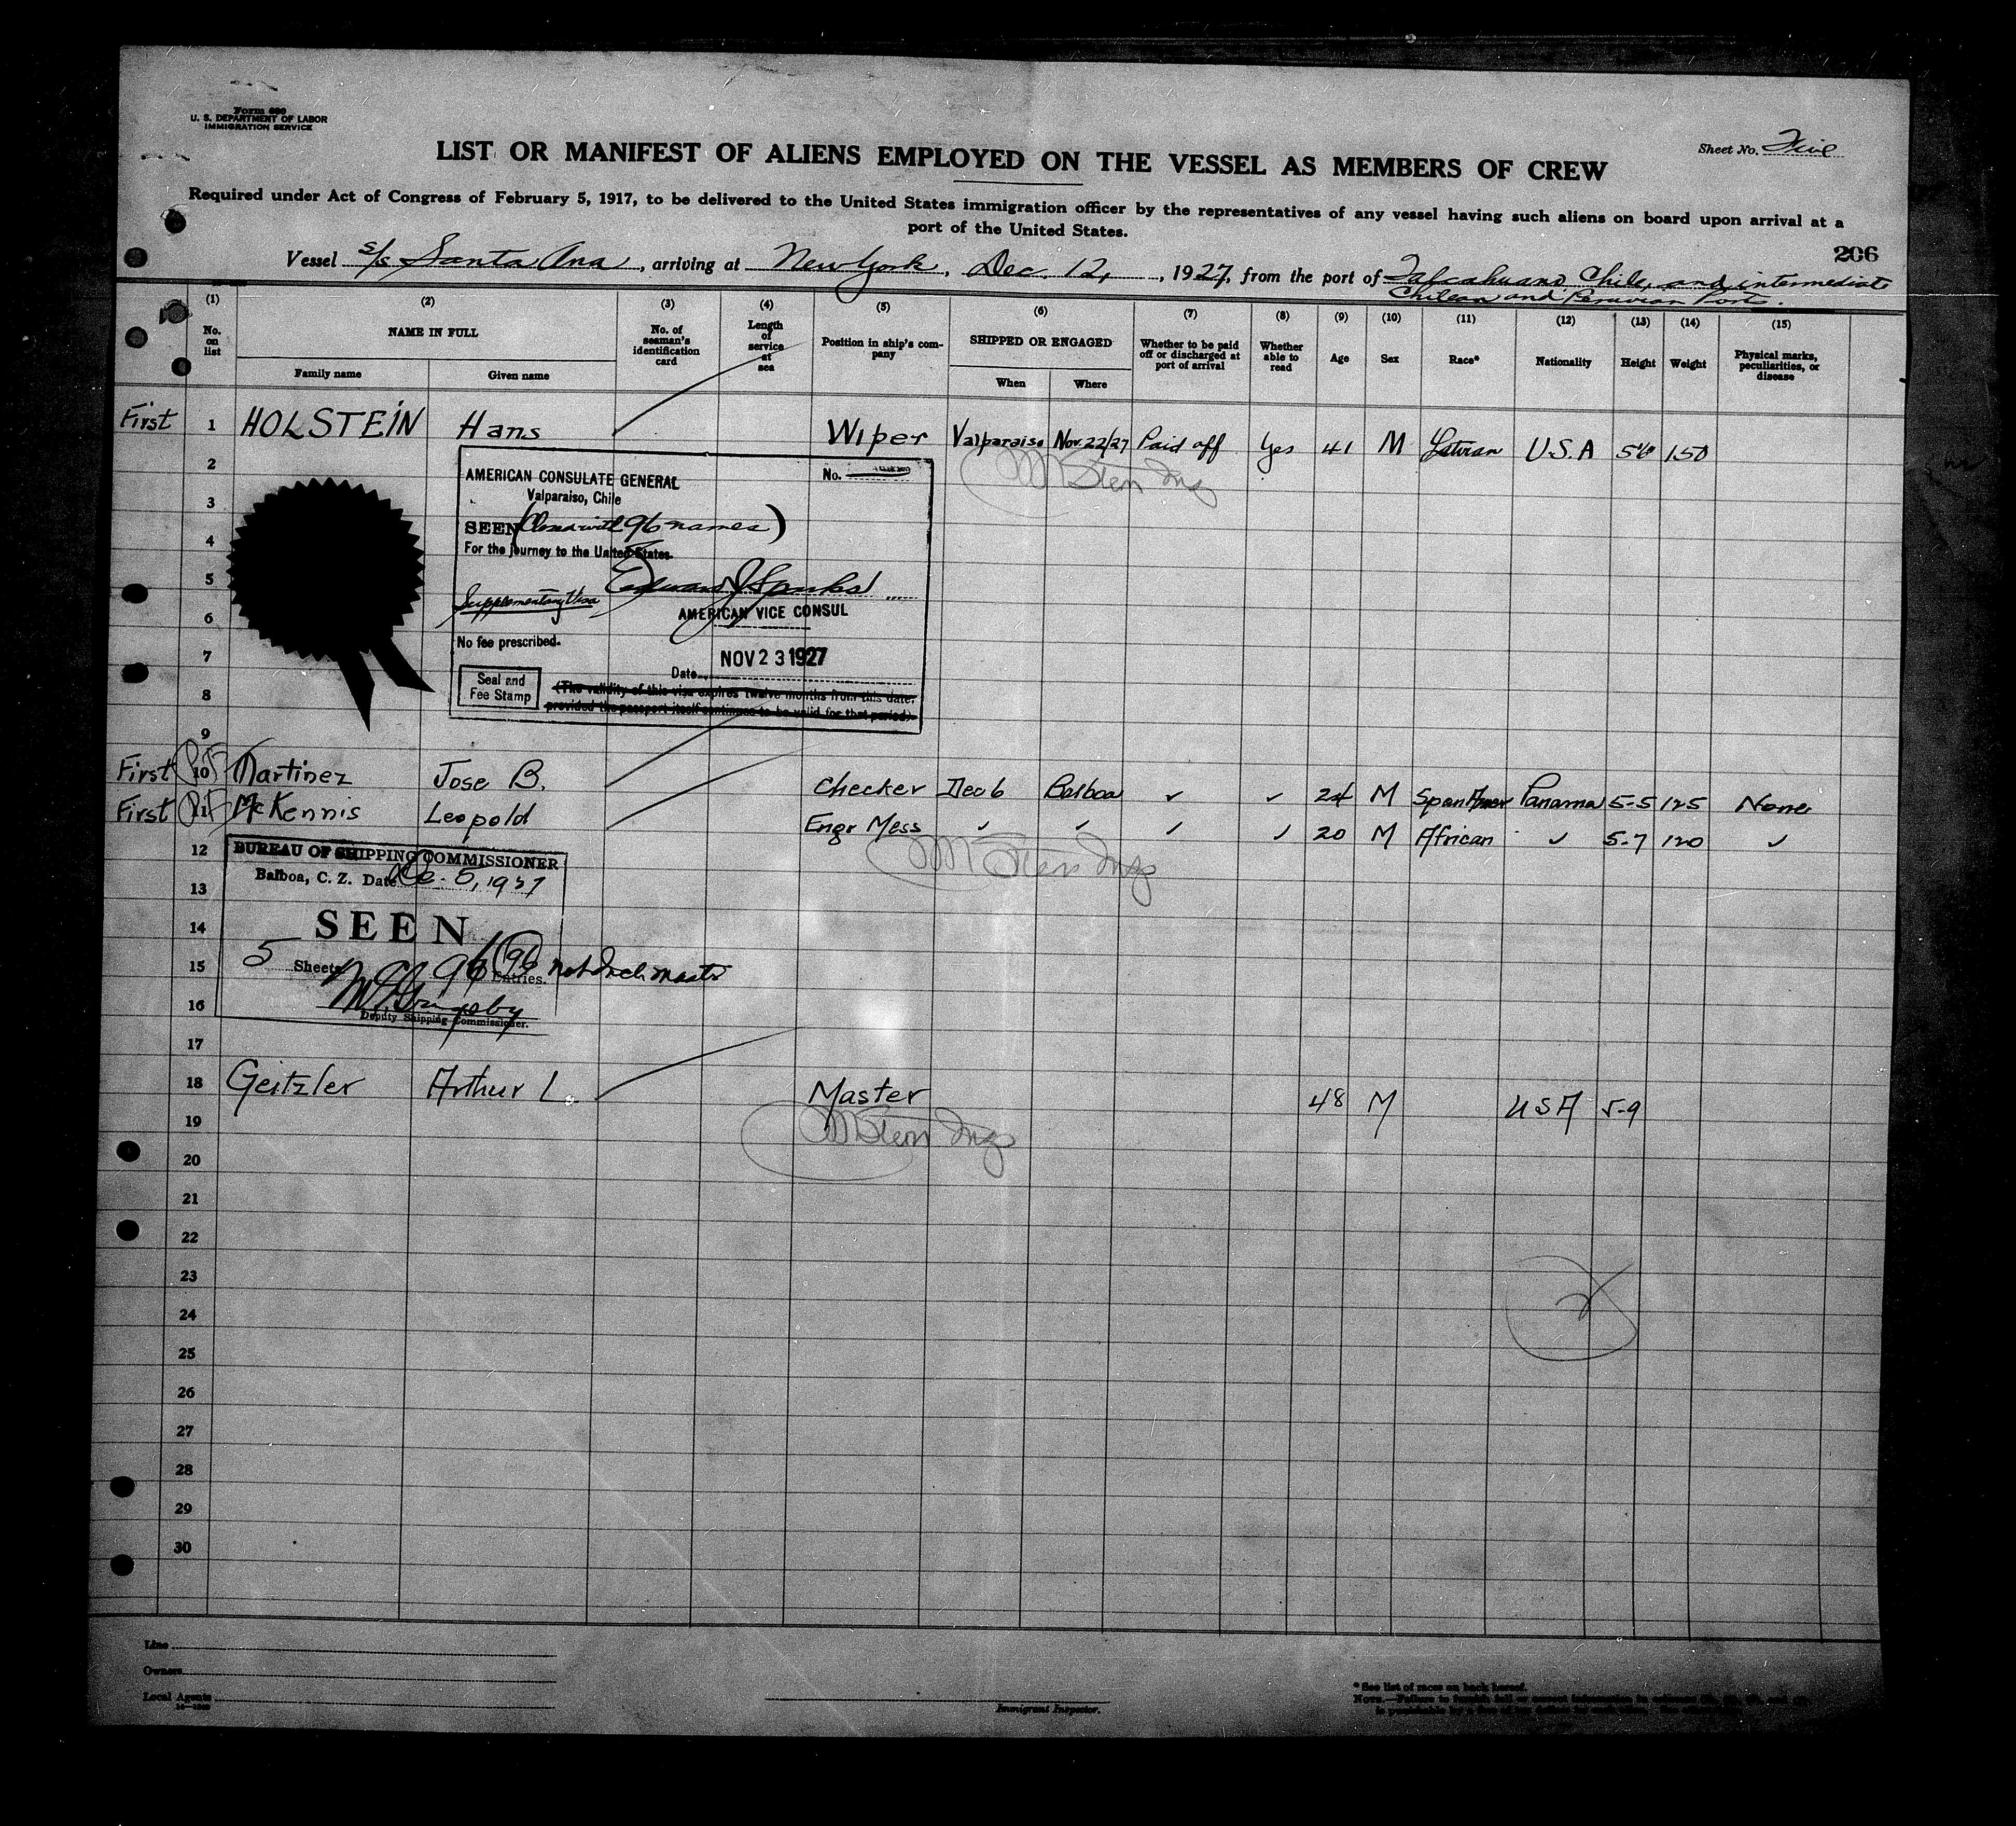 Form 680
U. S. DEPARTMENT OF LABOR
IMMIGRATION SERVICE
Sheet No. Five
LIST OR MANIFEST OF ALIENS EMPLOYED ON THE VESSEL AS MEMBERS OF CREW
Required under Act of Congress of February 5, 1917, to be delivered to the United States immigration officer by the representatives of any vessel having such aliens on board upon arrival at a
port of the United States.
206
Vessel s/s Santa Ana, arriving at New York, Dec. 12, 1927, from the port of Talcahuano Chile, and intermediate
Chilean and Peruvian Ports.
(1) (2) (3) (4) (5) (6) (7) (8) (9) (10) (11) (12) (13) (14) (15)
No. on list
NAME IN FULL
Family name
Given name
No. of seaman's identification card
Length of service at sea
Position in ship's company
SHIPPED OR ENGAGED
When
Where
Whether to be paid off or discharged at port of arrival
Whether able to read
Age
Sex
Race*
Nationality
Height
Weight
Physical marks, peculiarities, or disease
First 1 HOLSTEIN Hans Wiper Valparaiso Nov. 22/27 Paid off Yes 41 M U.S.A 150
2
3
4
5
6
7
8
9
AMERICAN CONSULATE GENERAL No.
Valparaiso, Chile
SEEN (Closed with 96 names)
For the journey to the United States.
Supplementary Visa
AMERICAN VICE CONSUL
No fee prescribed.
Date NOV 23 1927
Seal and
Fee Stamp
(The validity of this visa expires twelve months from this date,
provided the passport itself continues to be valid for that period).
First 10 Martinez Jose B. Checker Dec 6 Balboa ✓ ✓ 24 M Span Amer Panama 5-5 125 None
First 11 McKennis Leopold Engr Mess ✓ ✓ ✓ ✓ 20 M African ✓ 5-7 120 ✓
12
13
14
15
16
17
BUREAU OF SHIPPING COMMISSIONER
Balboa, C. Z. Date 1927
SEEN
5 Sheets 96 Entries.
Deputy Shipping Commissioner.
18 Geitzler Arthur L. Master 48 M USA 5-9
19
20
21
22
23
24
25
26
27
28
29
30
Line
Owners
Local Agents
Immigrant Inspector.
* See list of races on back hereof.